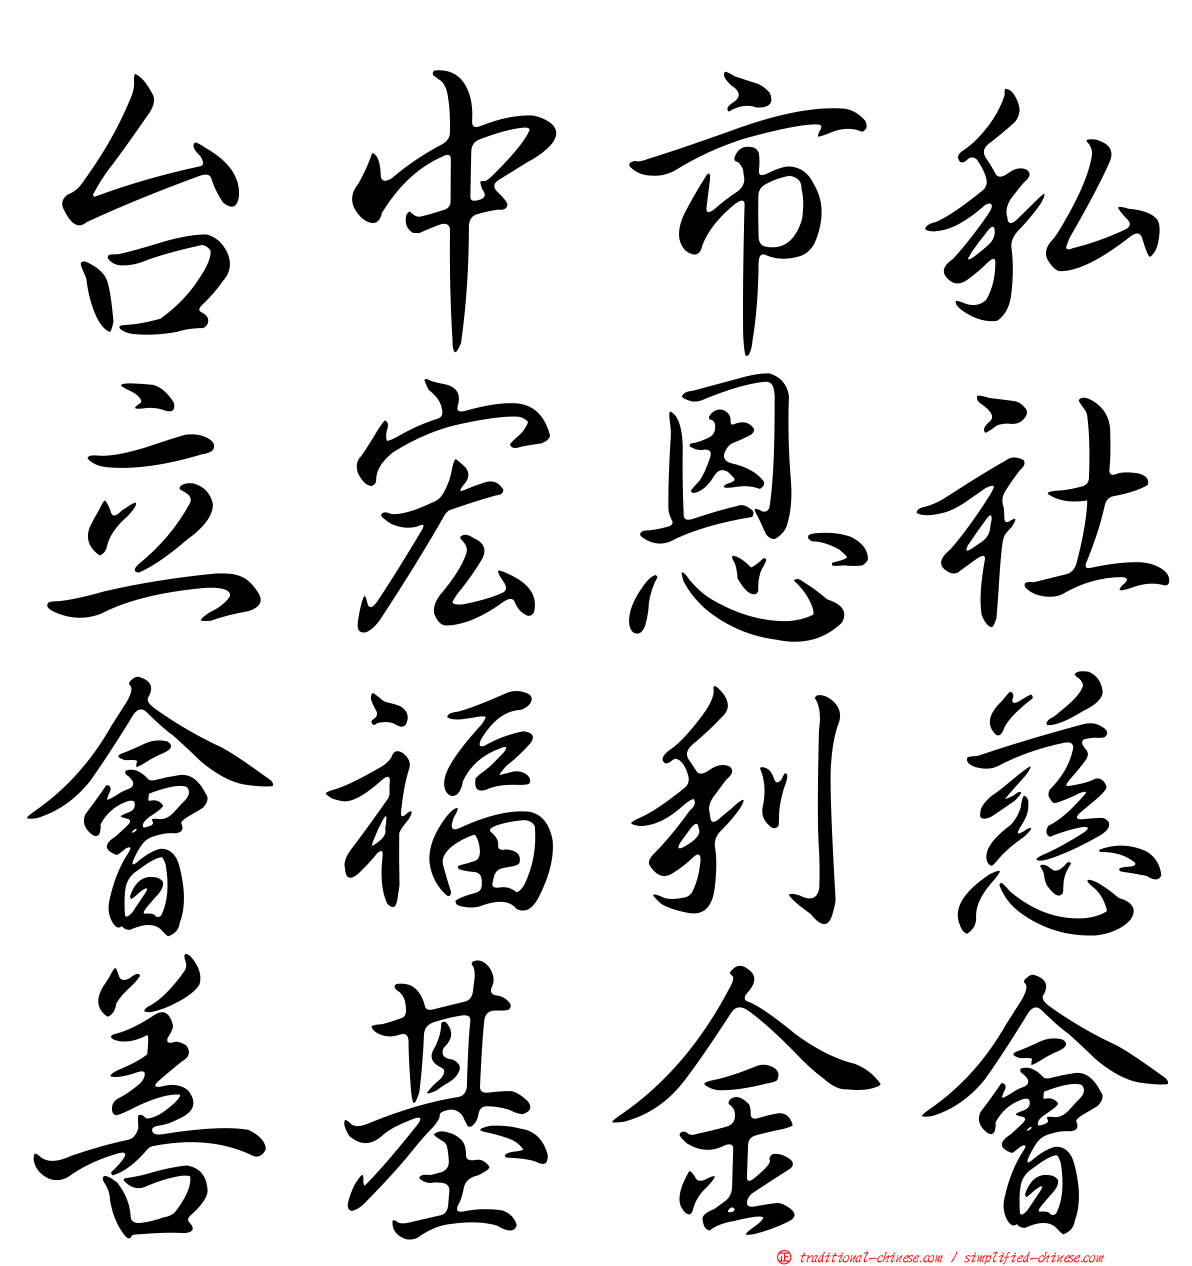 台中市私
立宏恩社
會福利慈
善基金會
正 traditional-chinese.com / simplified-chinese.com